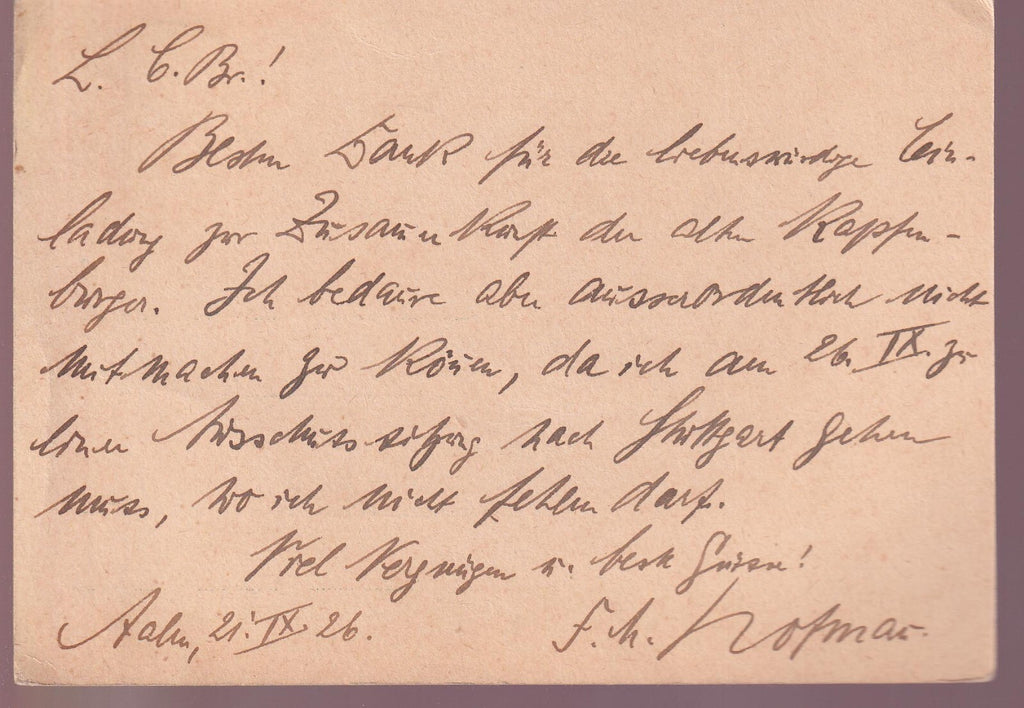 L. C. Br.!
Besten Dank für die liebenswürdige Ein-
ladung zur Zusammenkunft der alten Kapfen-
burger. Ich bedaure aber ausserordentlich nicht
mitmachen zu können, da ich am 26. IX. zu
einer Ausschusssitzung nach Stuttgart gehen
muss, wo ich nicht fehlen darf.
Viel Vergnügen u. beste Grüsse!
Aalen, 21. IX. 26. Hofman.